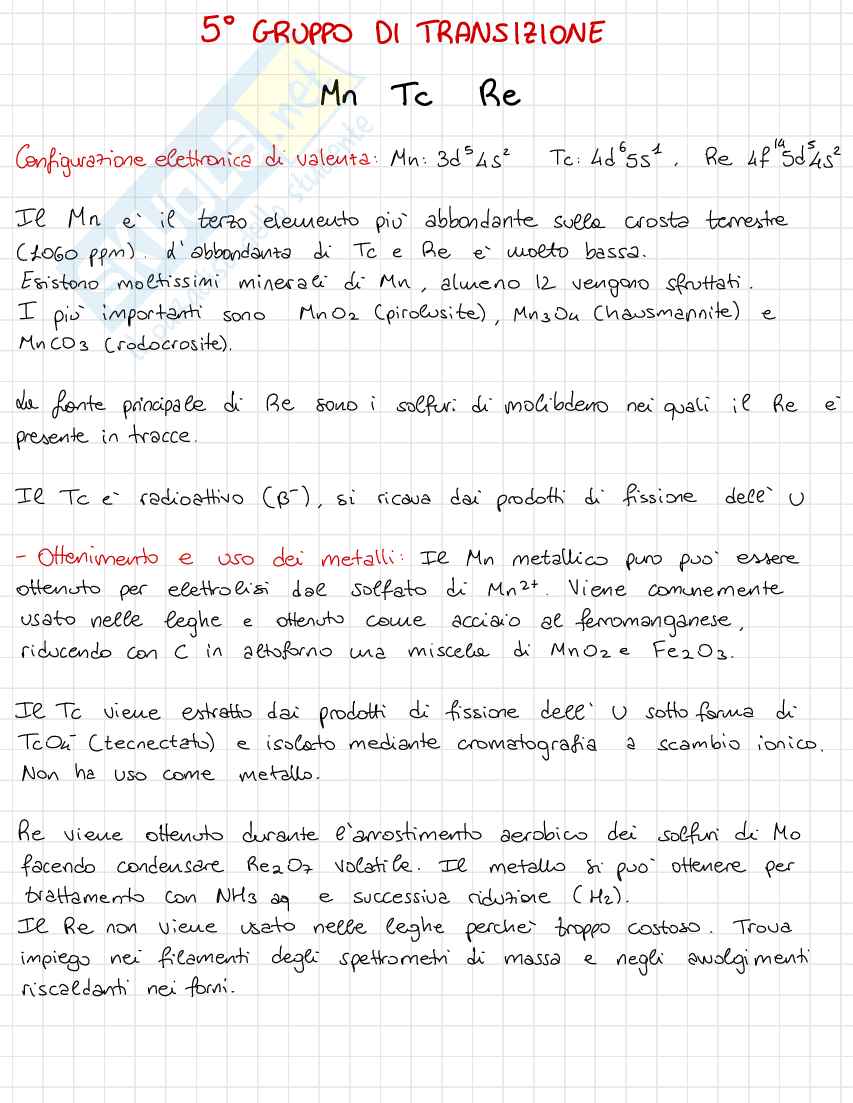 5° GRUPPO DI TRANSIZIONE
Mn Tc Re
Configurazione elettronica di valenza: Mn: 3d⁵4s² Tc: 4d⁶5s¹, Re 4f¹⁴5d⁵4s²
Il Mn e' il terzo elemento piu' abbondante sulla crosta terrestre
(1060 ppm). L'abbondanza di Tc e Re e' molto bassa.
Esistono moltissimi minerali di Mn, almeno 12 vengono sfruttati.
I piu' importanti sono MnO2 (pirolusite), Mn3O4 (hausmannite) e
MnCO3 (rodocrosite).
La fonte principale di Re sono i solfuri di molibdeno nei quali il Re e'
presente in tracce.
Il Tc e' radioattivo (β⁻), si ricava dai prodotti di fissione dell' U
- Ottenimento e uso dei metalli: Il Mn metallico puro puo' essere
ottenuto per elettrolisi dal solfato di Mn²⁺. Viene comunemente
usato nelle leghe e ottenuto come acciaio al ferromanganese,
riducendo con C in altoforno una miscela di MnO2 e Fe2O3.
Il Tc viene estratto dai prodotti di fissione dell' U sotto forma di
TcO4⁻ (tecnectato) e isolato mediante cromatografia a scambio ionico.
Non ha uso come metallo.
Re viene ottenuto durante l'arrostimento aerobico dei solfuri di Mo
facendo condensare Re2O7 volatile. Il metallo si puo' ottenere per
trattamento con NH3 aq e successiva riduzione (H2).
Il Re non viene usato nelle leghe perche' troppo costoso. Trova
impiego nei filamenti degli spettrometri di massa e negli avvolgimenti
riscaldanti nei forni.
SKUOLA.net